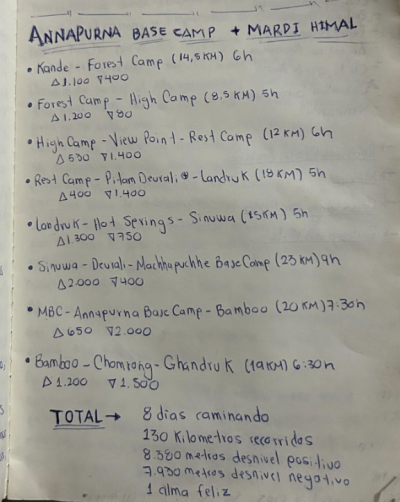 ANNAPURNA BASE CAMP + MARDI HIMAL
• Kande - Forest Camp (14,5 KM) 6h
△1.100 ▽400
• Forest Camp - High Camp (8,5 KM) 5h
△1.200 ▽80
• High Camp - View Point - Rest Camp (12 KM) 6h
△530 ▽1.400
• Rest Camp - Pitam Deurali - Landruk (18 KM) 5h
△400 ▽1.400
• Landruk - Hot Springs - Sinuwa (15KM) 5h
△1.300 ▽750
• Sinuwa - Deurali - Machhapuchhe Base Camp (23 KM) 9h
△2.000 ▽400
• MBC - Annapurna Base Camp - Bamboo (20 KM) 7:30h
△650 ▽2.000
• Bamboo - Chomrong - Ghandruk (19KM) 6:30h
△1.200 ▽1.500
TOTAL → 8 dias caminando
130 Kilometros recorridos
8.380 metros desnivel positivo
7.930 metros desnivel negativo
1 alma feliz